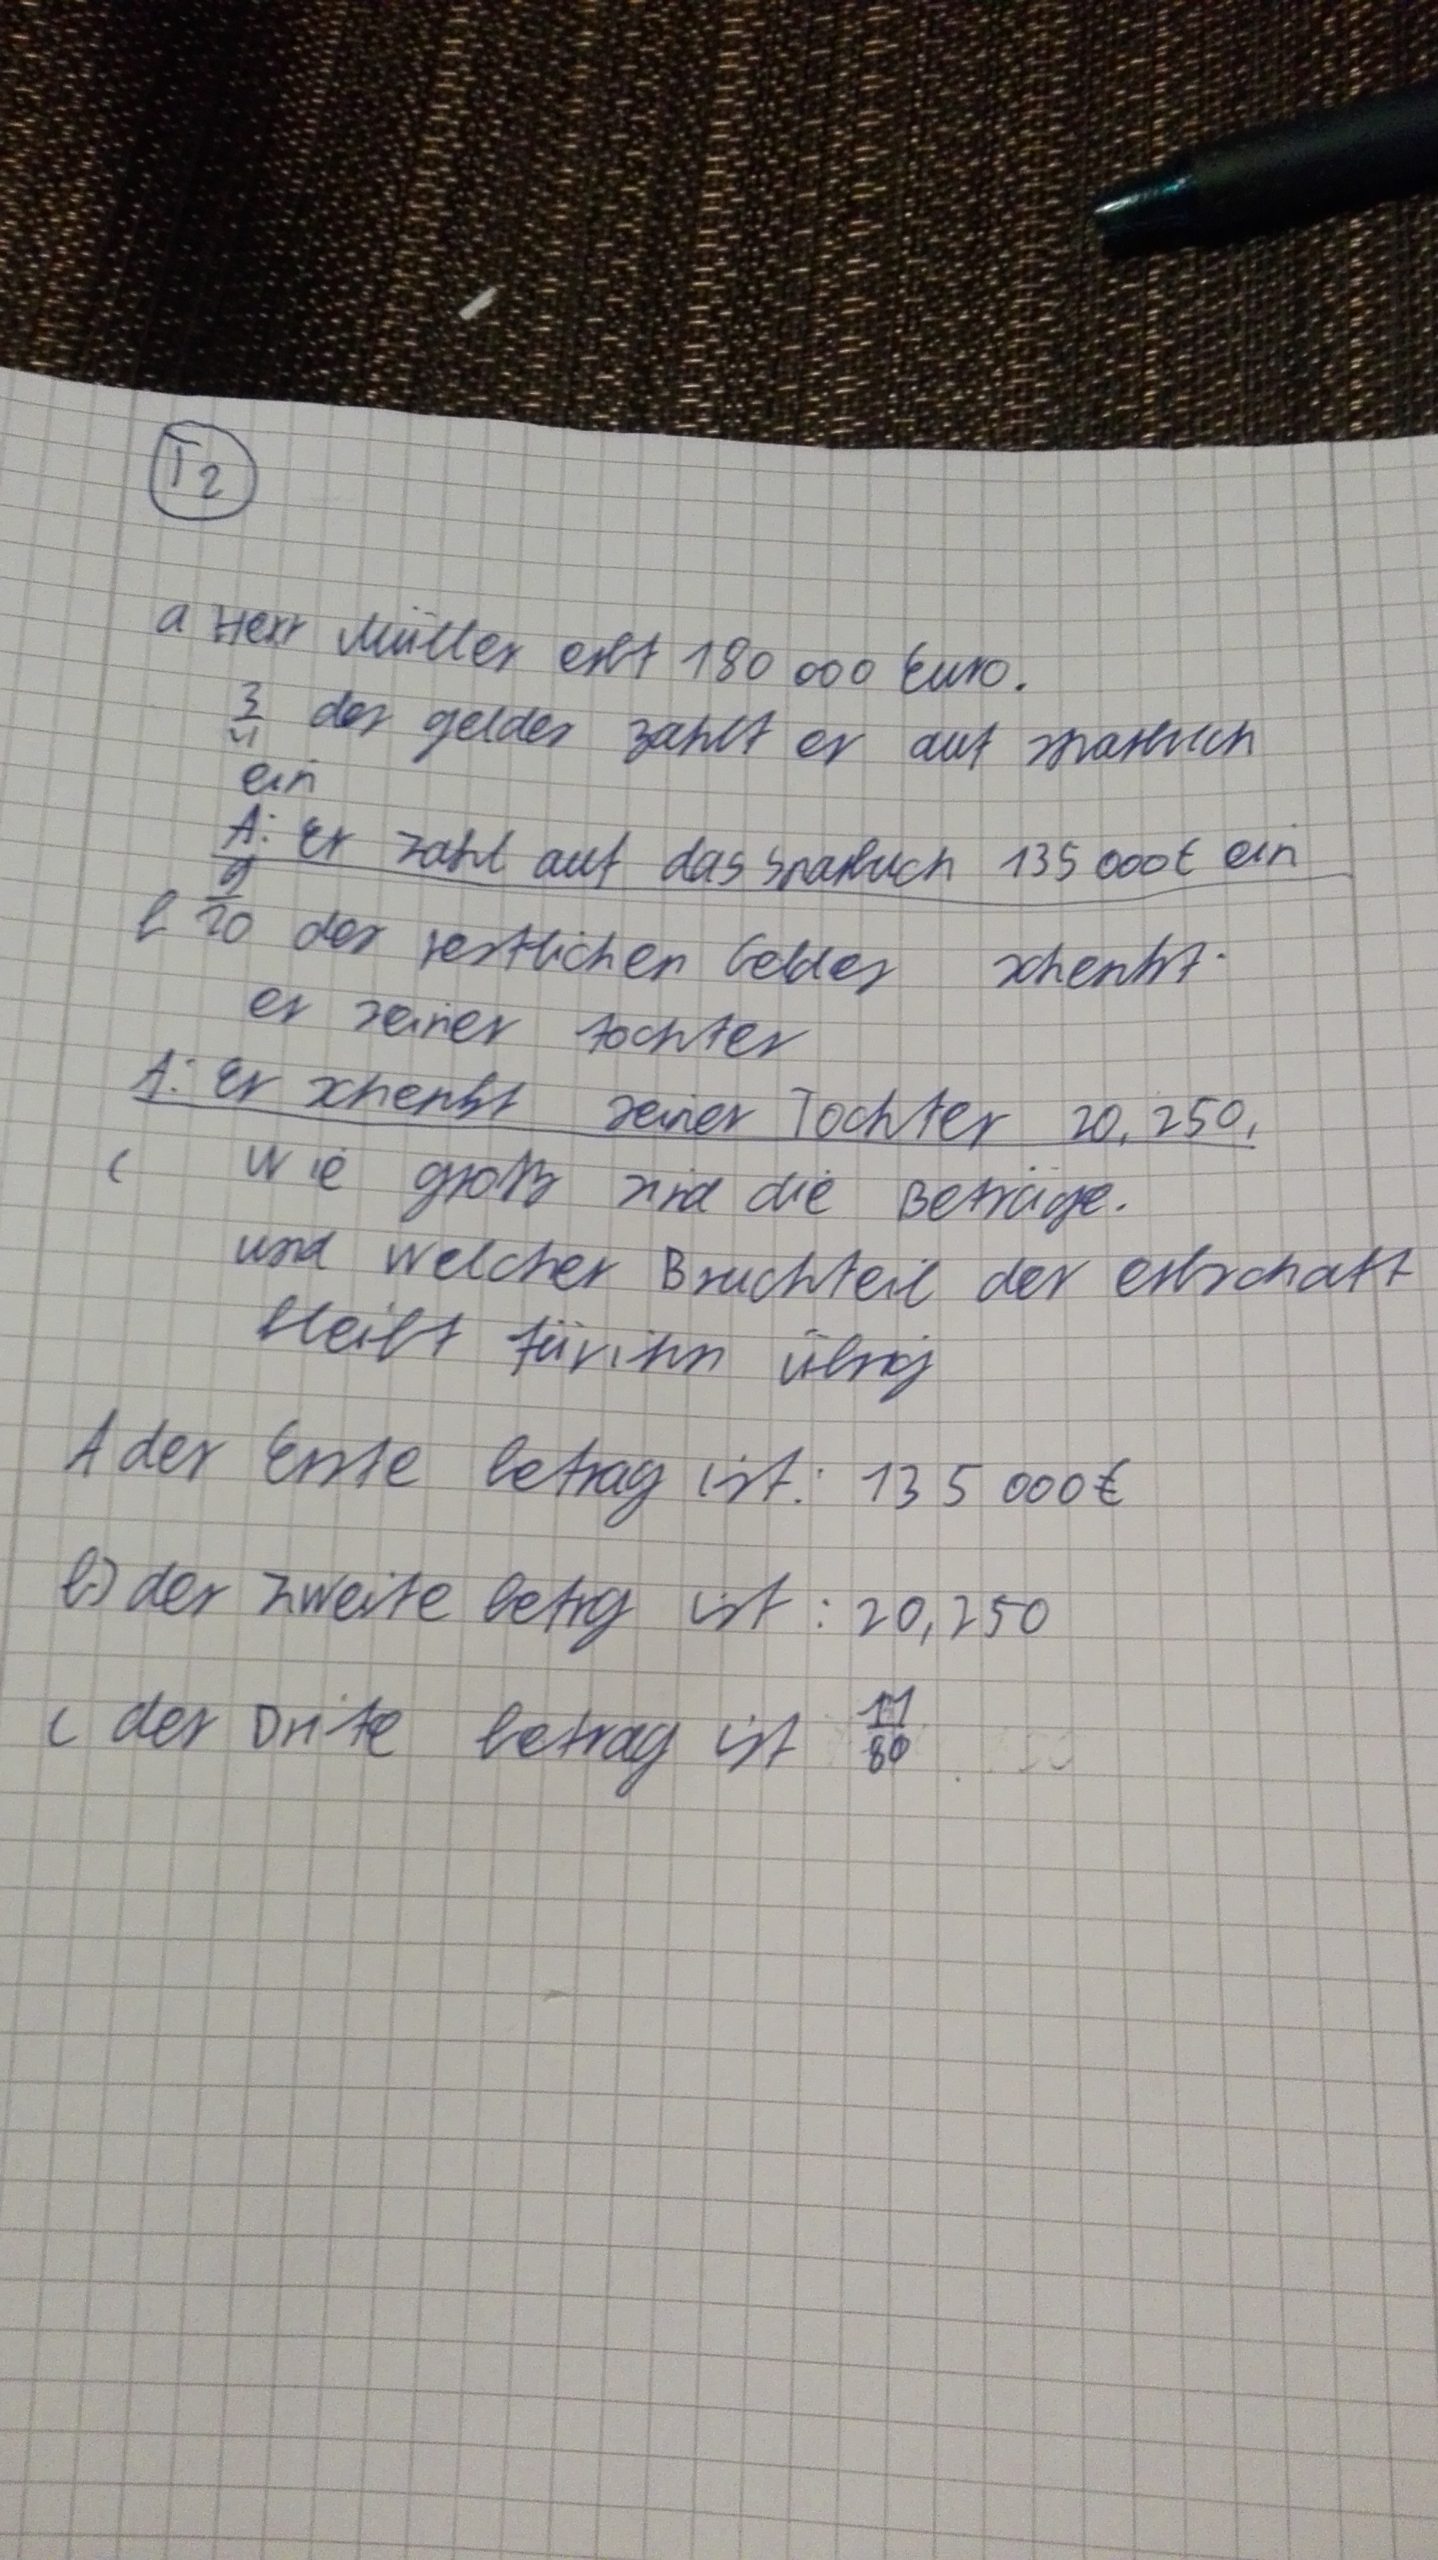 T2
a Herr Müller erbt 180 000 Euro.
3/4 des geldes zahlt er auf sparbuch
ein
A: Er zahl auf das Sparbuch 135 000€ ein
b 9/20 des restlichen Geldes schenkt
er seiner tochter
A: Er schenkt seiner Tochter 20,250,
c Wie groß sind die Beträge.
und welcher Bruchteil der erbschaft
bleibt für ihn übrig
A der Erste betrag ist: 135 000€
b) der zweite betrg ist: 20,250
c der Drite betrag ist 11/80